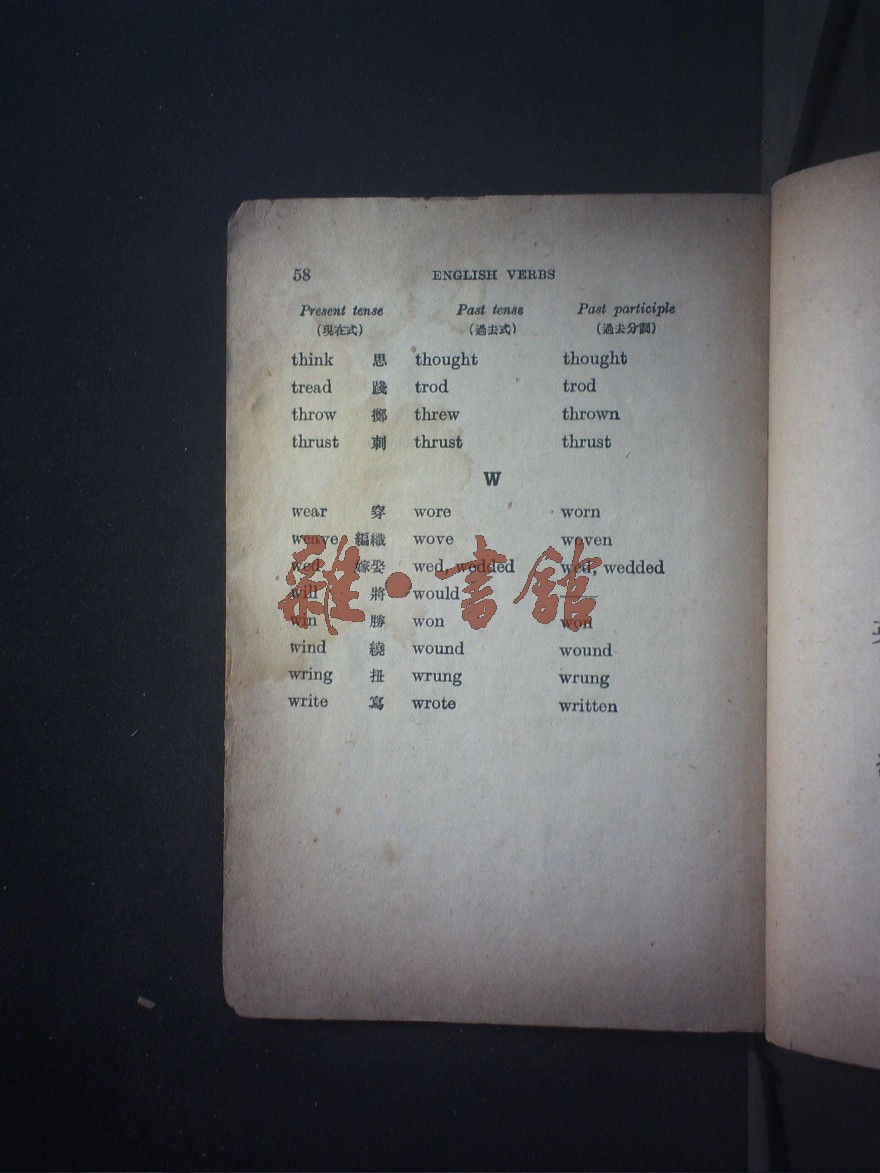 58 ENGLISH VERBS
Present tense Past tense Past participle
(現在式) (過去式) (過去分詞)
think 思 thought thought
tread 踐 trod trod
throw 擲 threw thrown
thrust 刺 thrust thrust
W
wear 穿 wore worn
weave 編織 wove woven
wed 嫁娶 wed, wedded wed, wedded
will 將 would —
win 勝 won won
wind 繞 wound wound
wring 扭 wrung wrung
write 寫 wrote written
雜·書館